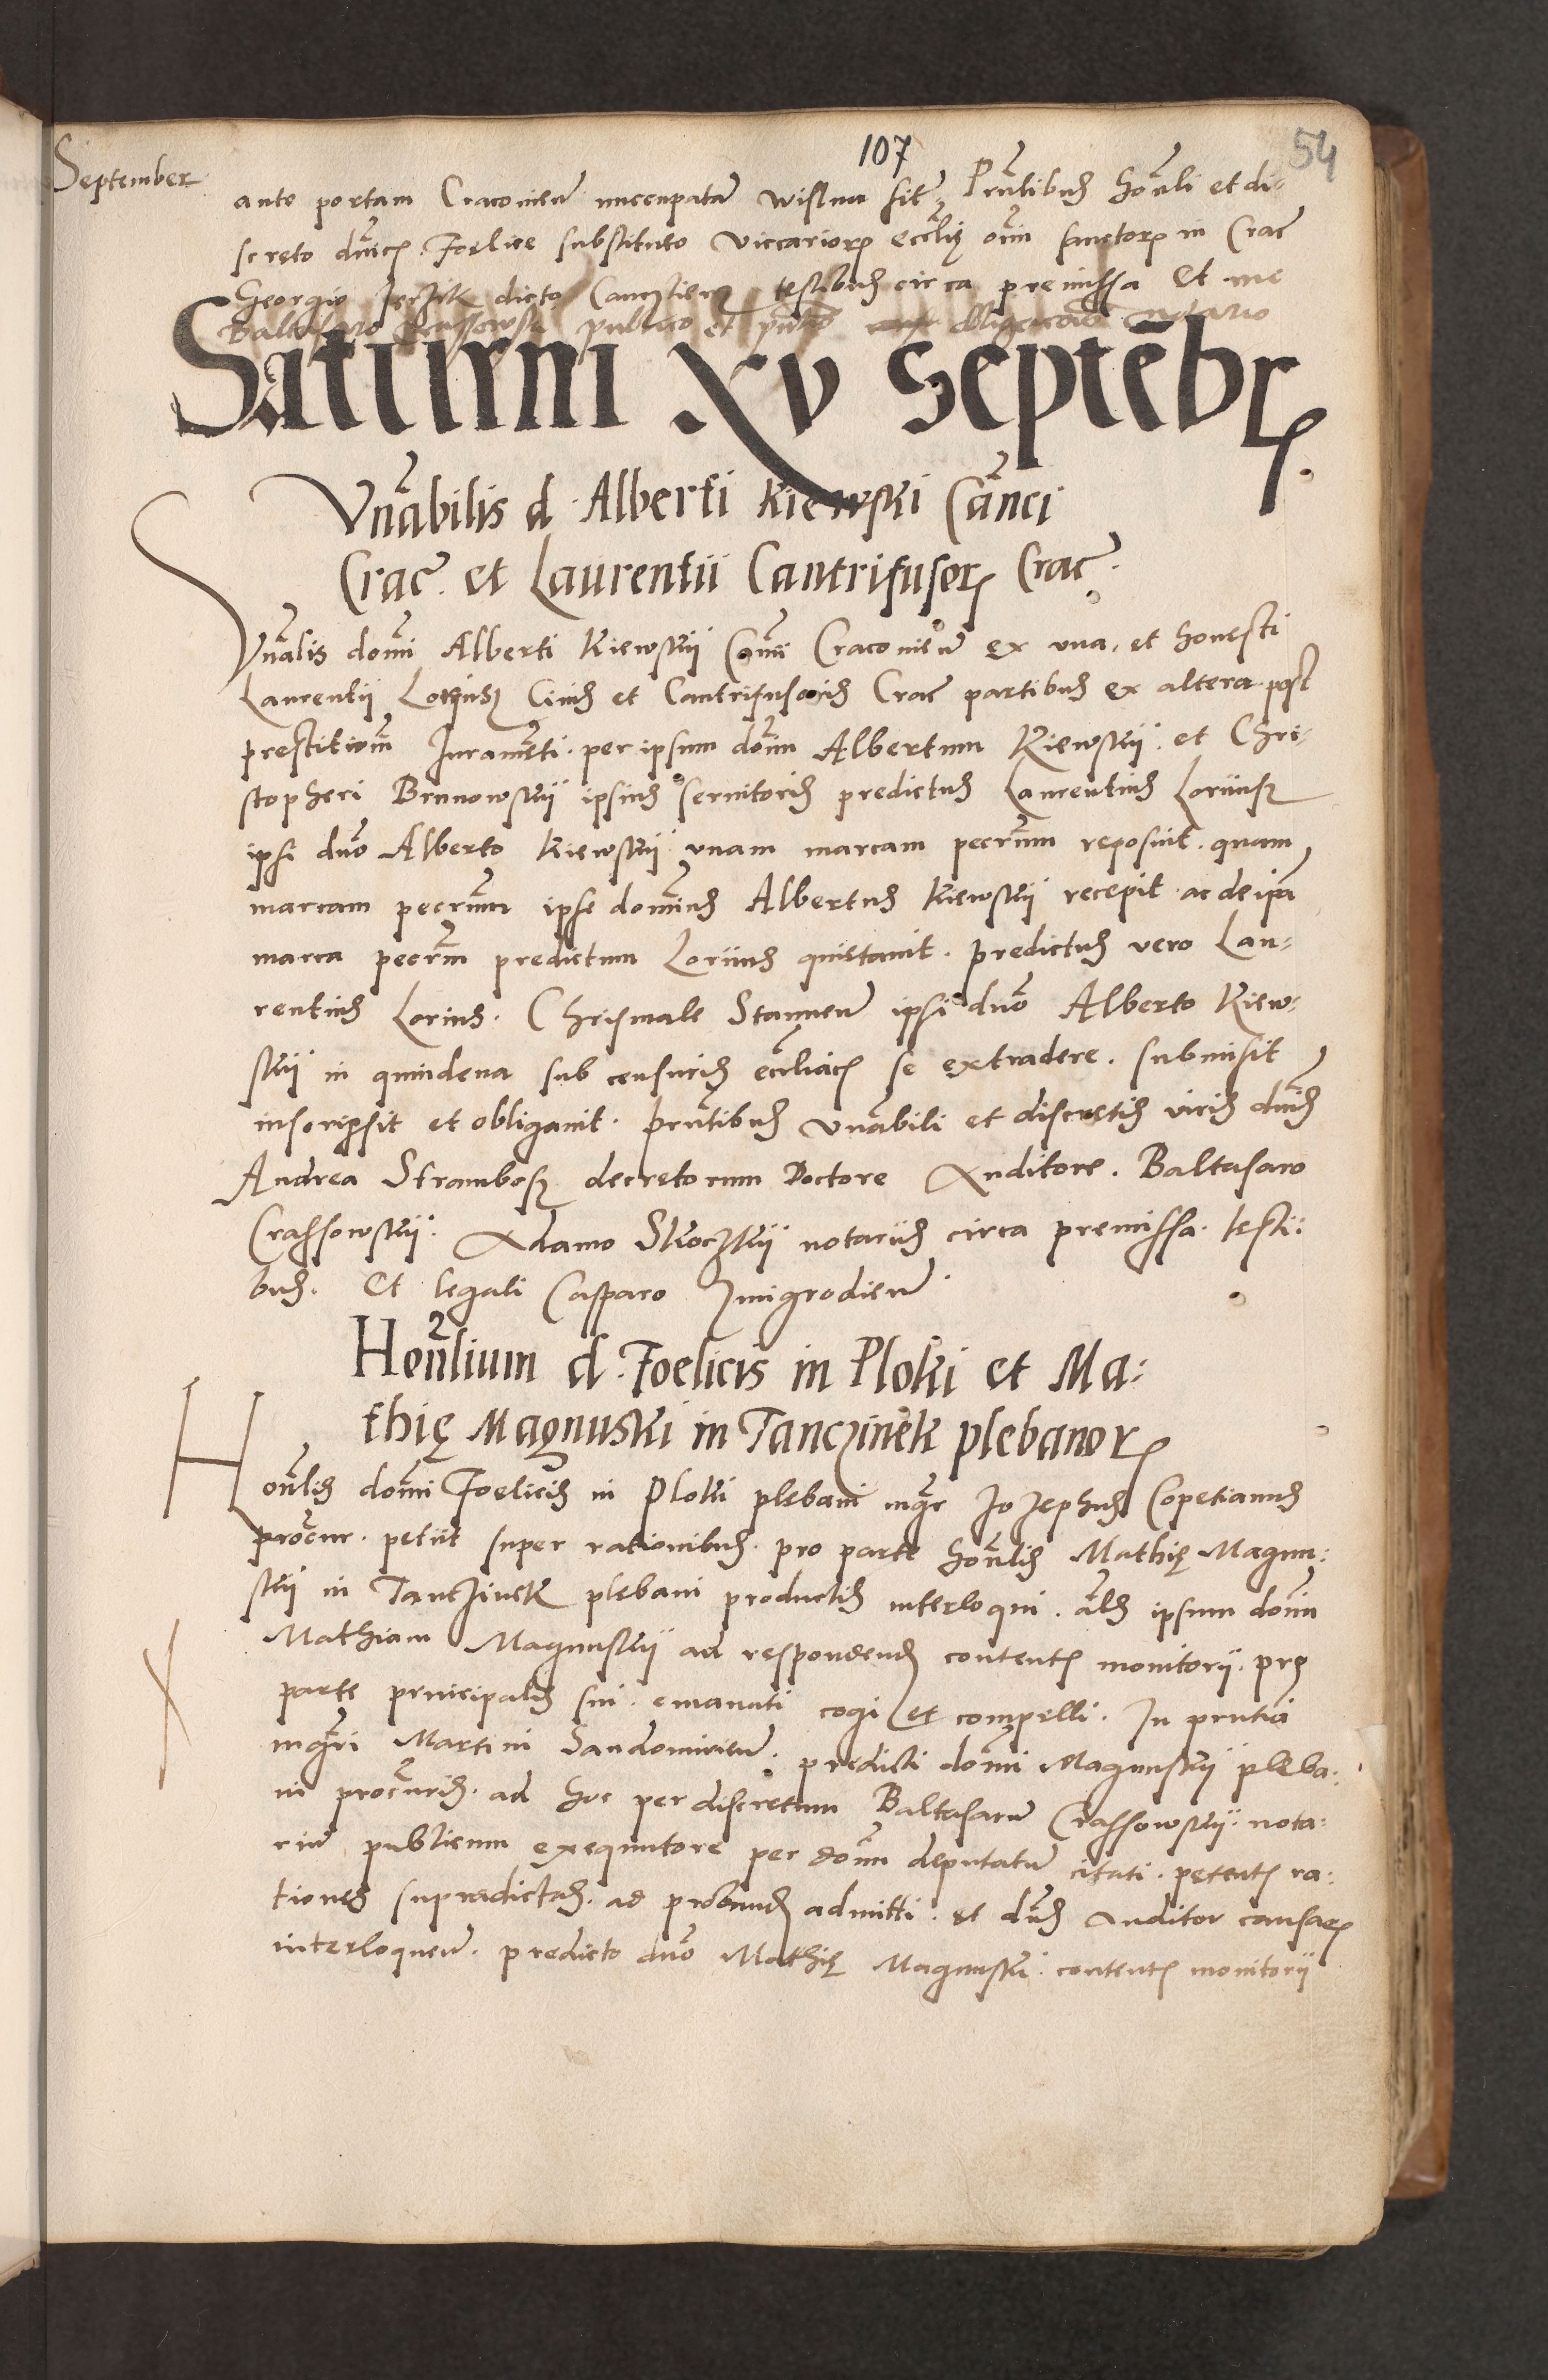 107
54
September
ante portam Cracovien̄ nuncupatā Wislna sit̄ Prn̄tibus honn̄li et di-
screto dn̄icꝭ Foelice substituto viccarioꝝ eccl̄ię om̄n sanctoꝝ in Crac̄
Georgio dicto testibus circa premissa Et me
Baltasaro publico et notario
Saturni XV Septēbꝝ
Vn̄abilis d. Alberti Kiewski Cān̄ci
Crac̄. et Laurentii Cantrifusoꝝ Crac̄.
Vn̄alis domī Alberti Kiewskij Cann̄ci Cracovien̄ ex una, et honesti
Laurentii Civis et Cantrifusoris Crac̄ partibus ex altera post
prestitionem̄ Juramēti per ipsum domn̄ Albertum Kiewskij et Chri-
stopheri Brunowskij ipsius servitoris predictus Laurentius Loriusz
ipsi dn̄o Alberto Kiewskij unam marcam pecn̄um reposuit. quam
marcam pecn̄um ipse dominus Albertus Kiewskij recepit ac de ipā
marca pecn̄m predictum Lorius quietavit. predictus vero Lau-
rentius Lorius. Chrismale Stanneū ipsi dn̄o Alberto Kiew-
skij in quindena sub censuris ecc̄liacꝭ se extradere. submisit
inscripsit et obligavit. prn̄tibus vn̄abili et discretis viris dn̄is
Andrea Strambosz decretorum Doctore Auditore. Baltasaro
Crassowskij. Adamo Skoczkij notariis circa premissa testi-
bus. Et legali Casparo Zmigrodien̄
Hon̄lium d. Foelicis in Ploki et Ma:
thię Magnuski in Tanczinek plebanoꝝ
Hon̄lis domī Foelicis in Ploki plebani mḡr Jozephus Copetianus
procur. petiit super rationibus. pro parte hon̄lis Mathię Magnu:
skij in Tanczinek plebani productis interloqui. al̄s ipsum domī
Mathiam Magnuskij ad respondendꝭ contentꝭ monitorii. pro
parte principalis sui. emanati cogi et compelli. In prn̄tia
mḡri Martini Sandomirien̄. predicti domī Magnuskij pleba:
ni procuris. ad hoc per discretum Baltasarū Crassowskij. nota:
riū publicum exequutorē per domn̄ deputatū citati. petentꝭ ra:
tiones supradictas. ad probandꝭ admitti. et dn̄s Auditor causaꝝ
interloquen̄. predicto dn̄o Mathię Magnuski. contentꝭ monitorii